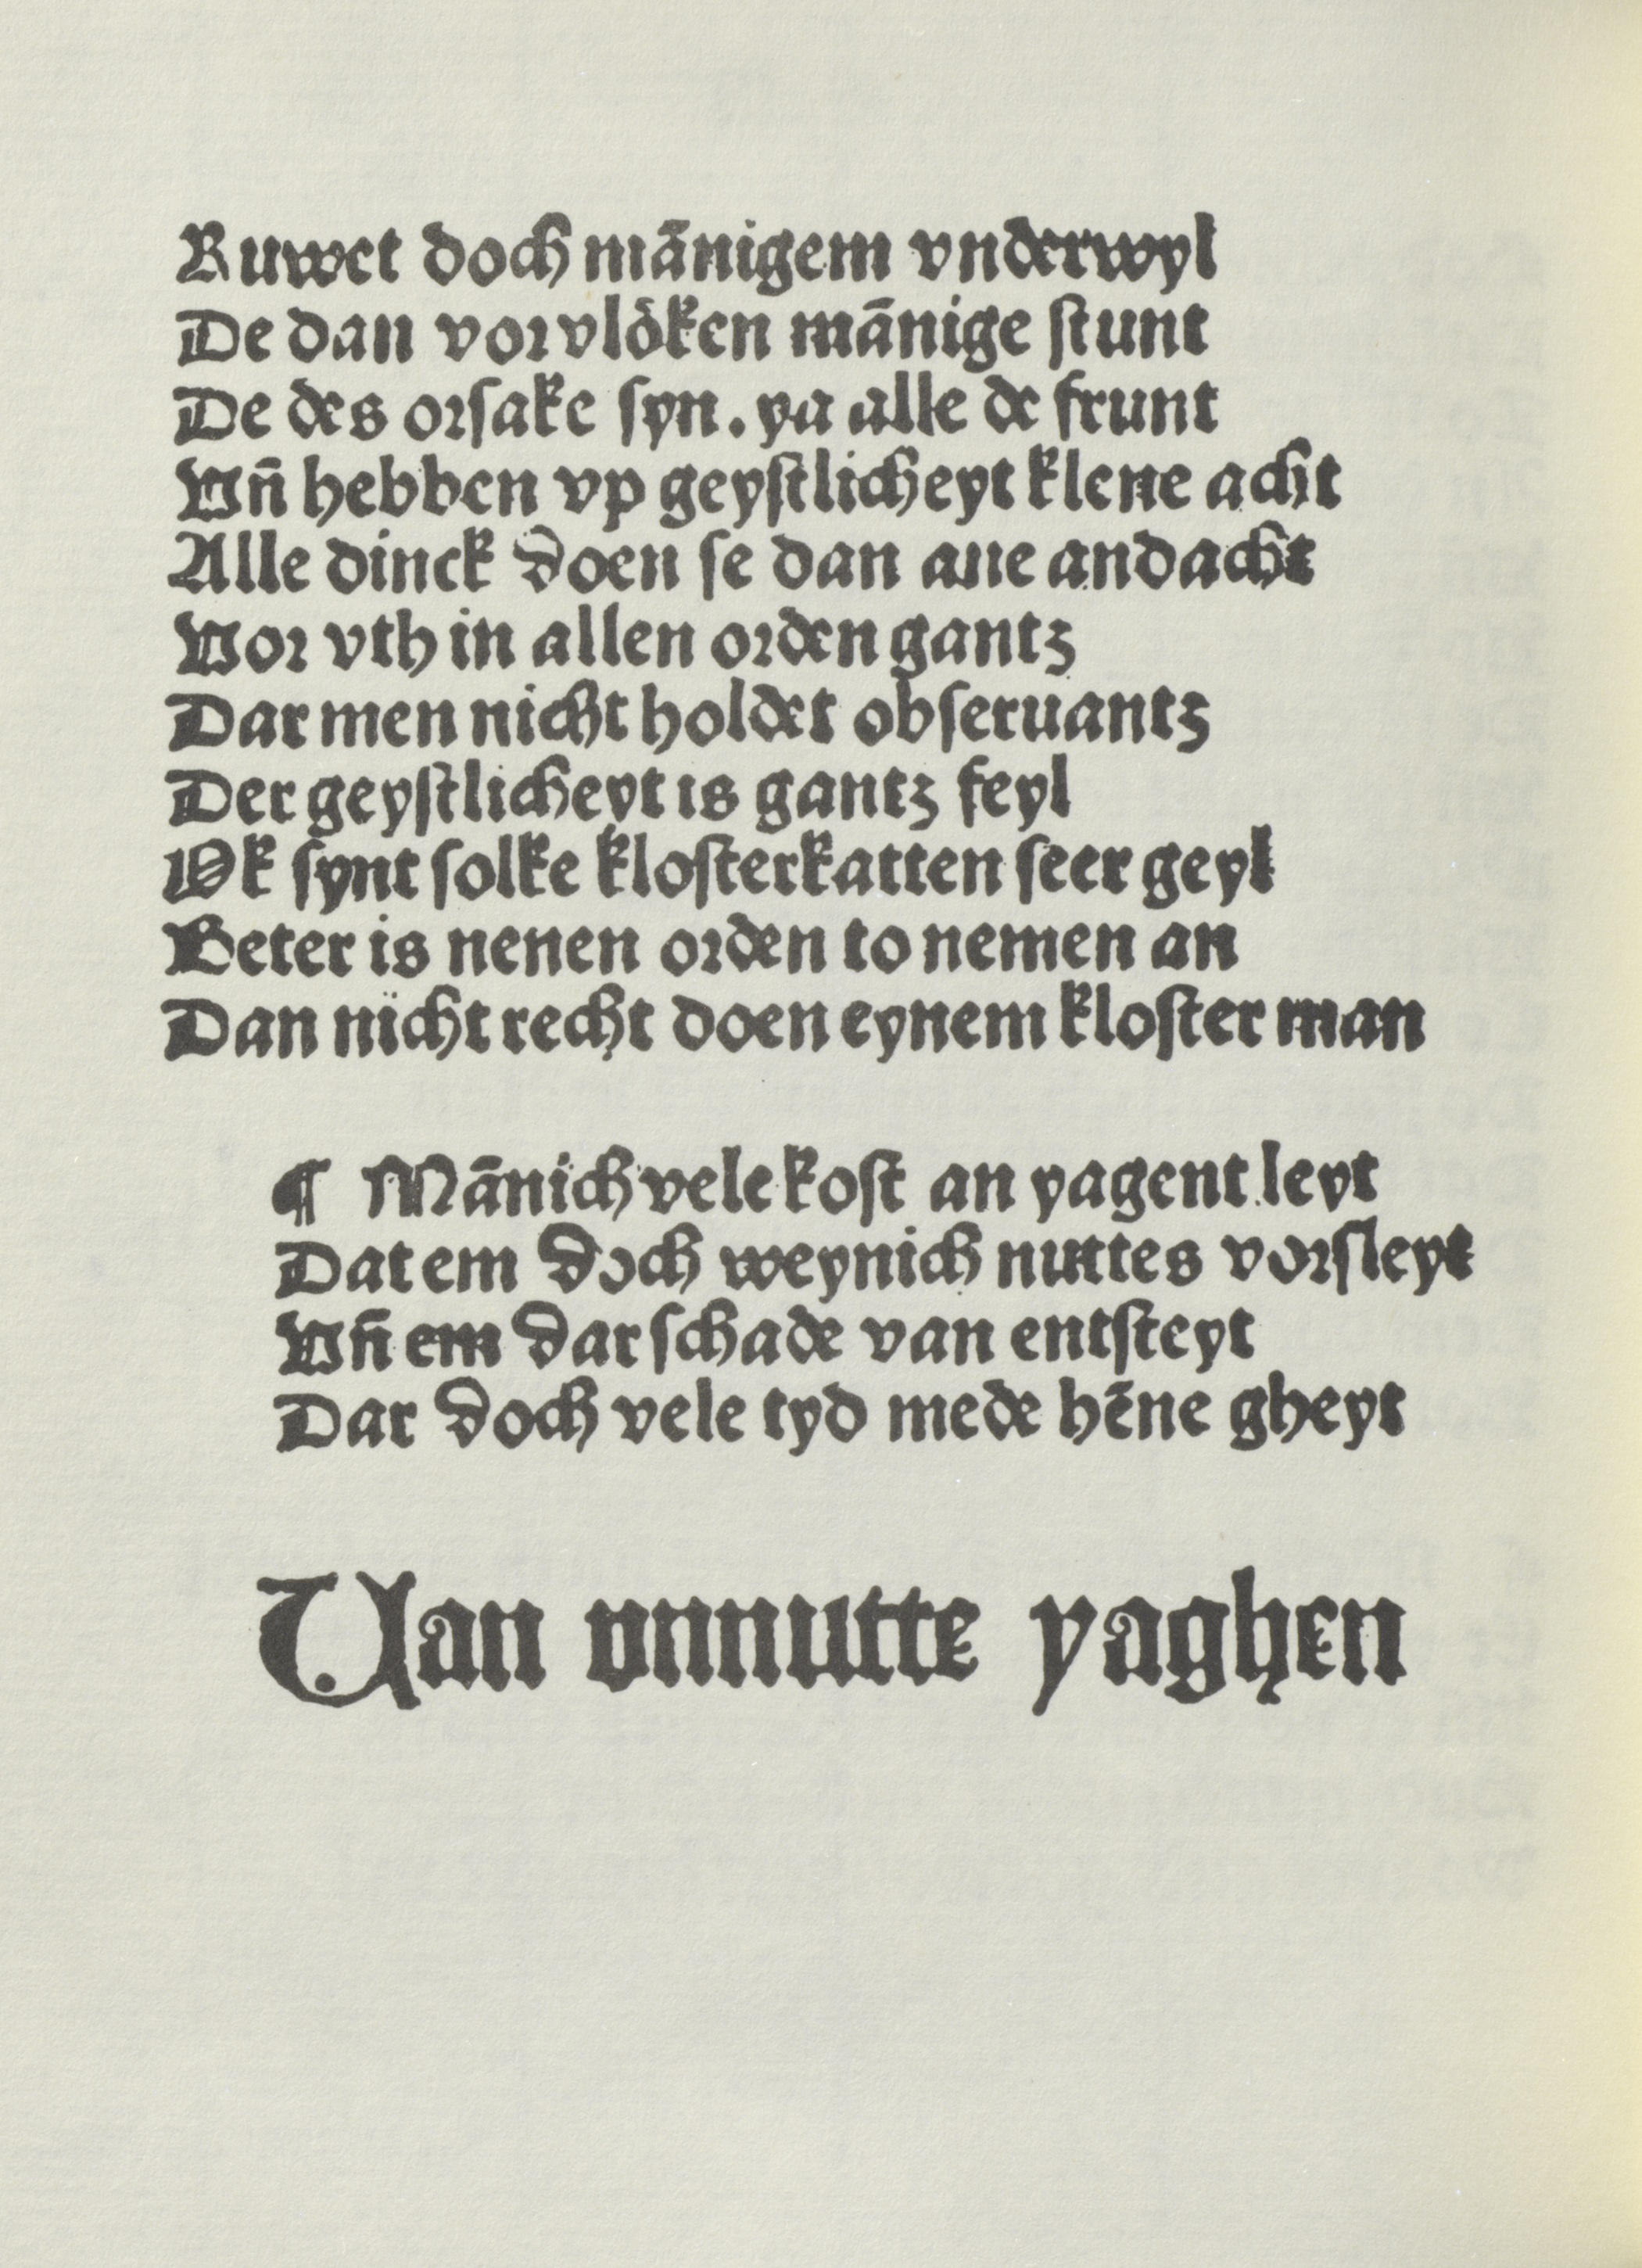 Ruwet doch mānigem vnderwyl
De dan vorvlöken mānige ſtunt
De des orſake ſyn. ya alle de frunt
Vn̄ hebben vp geyſtlicheyt klene acht
Alle dinck doen ſe dan ane andacht
Vor vth in allen orden gantz
Dar men nicht holdet obſeruantz
Der geyſtlicheyt is gantz feyl
Ok ſynt ſolke kloſterkatten ſeer geyl
Beter is nenen orden to nemen an
Dan nicht recht doen eynem kloſter man
¶ Mānich vele koſt an yagent leyt
Dat em doch weynich nuttes vorſleyt
Vn̄ em dar ſchade van entſteyt
Dar doch vele tyd mede hēne gheyt
Van vnnutte yaghen